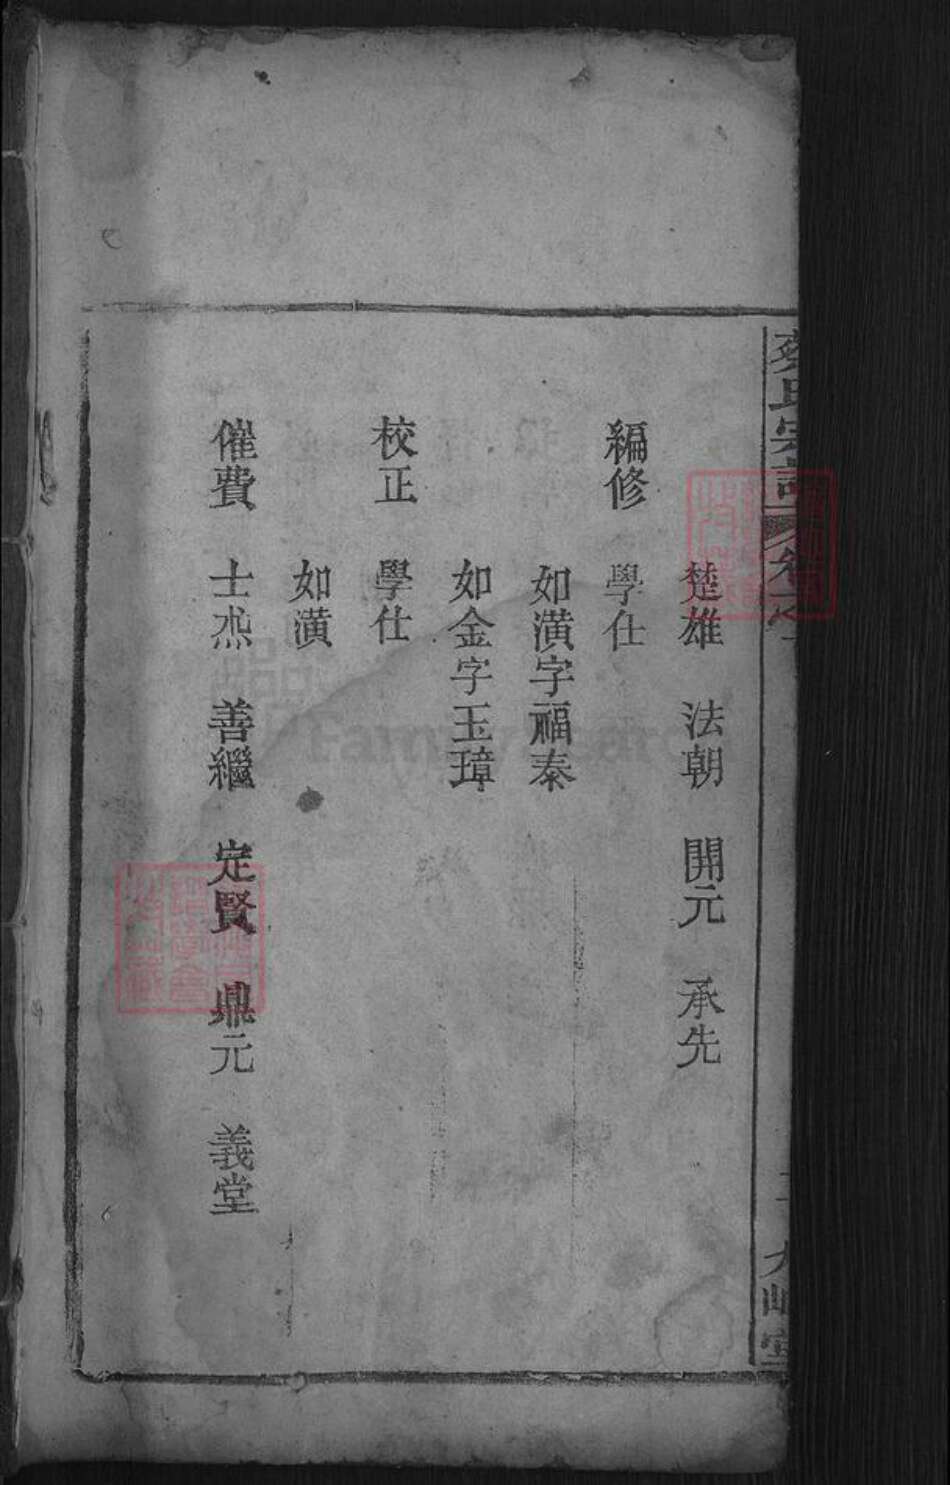 楚雄　法朝　開元　承先
編修　學仕
如潢字福泰
如金字玉璋
校正　學仕
如潢
催費　士𤋮　善繼　定賢　鼎元　義堂
氏宗譜